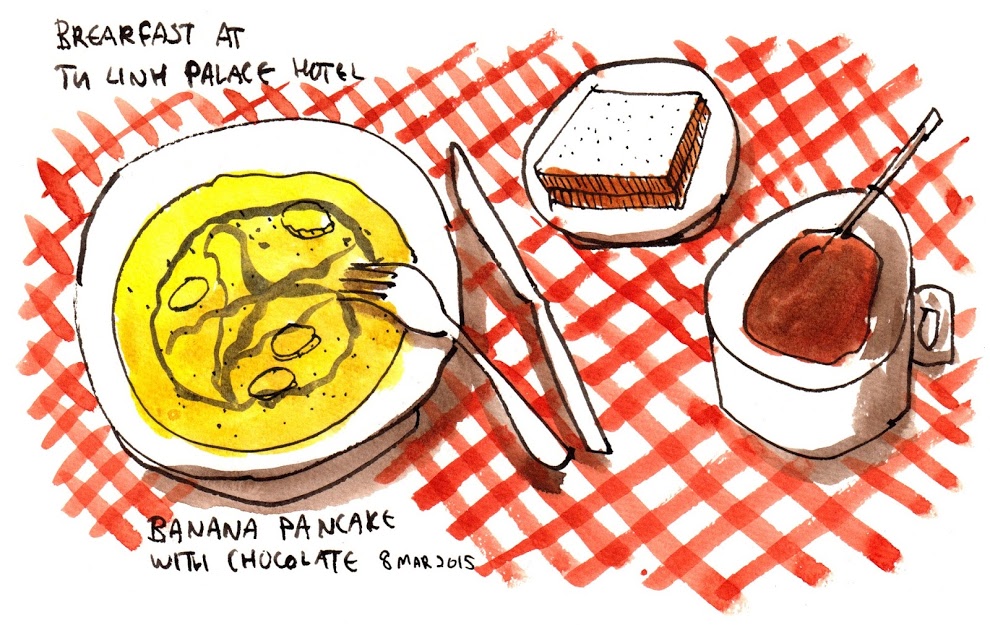 BREAKFAST AT
TU LINH PALACE HOTEL
BANANA PANCAKE
WITH CHOCOLATE 8 MAR 2015